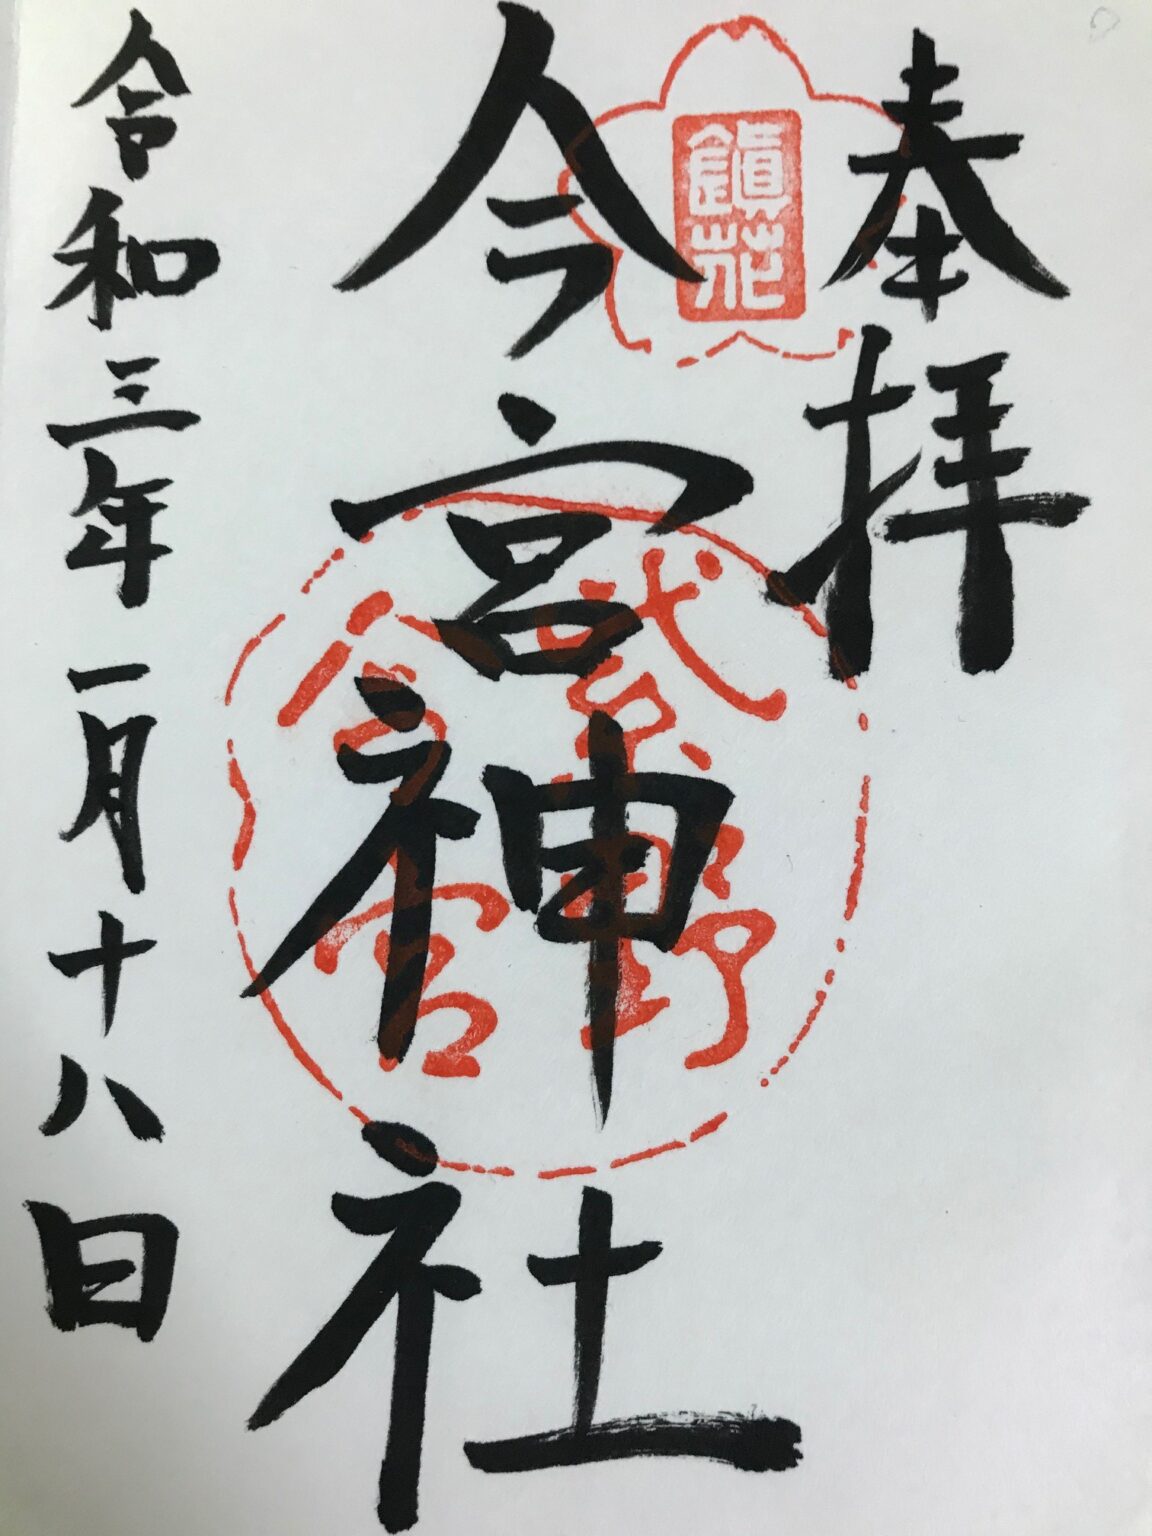 奉拝
鎮花
今宮神社
紫野
今宮
令和三年一月十八日